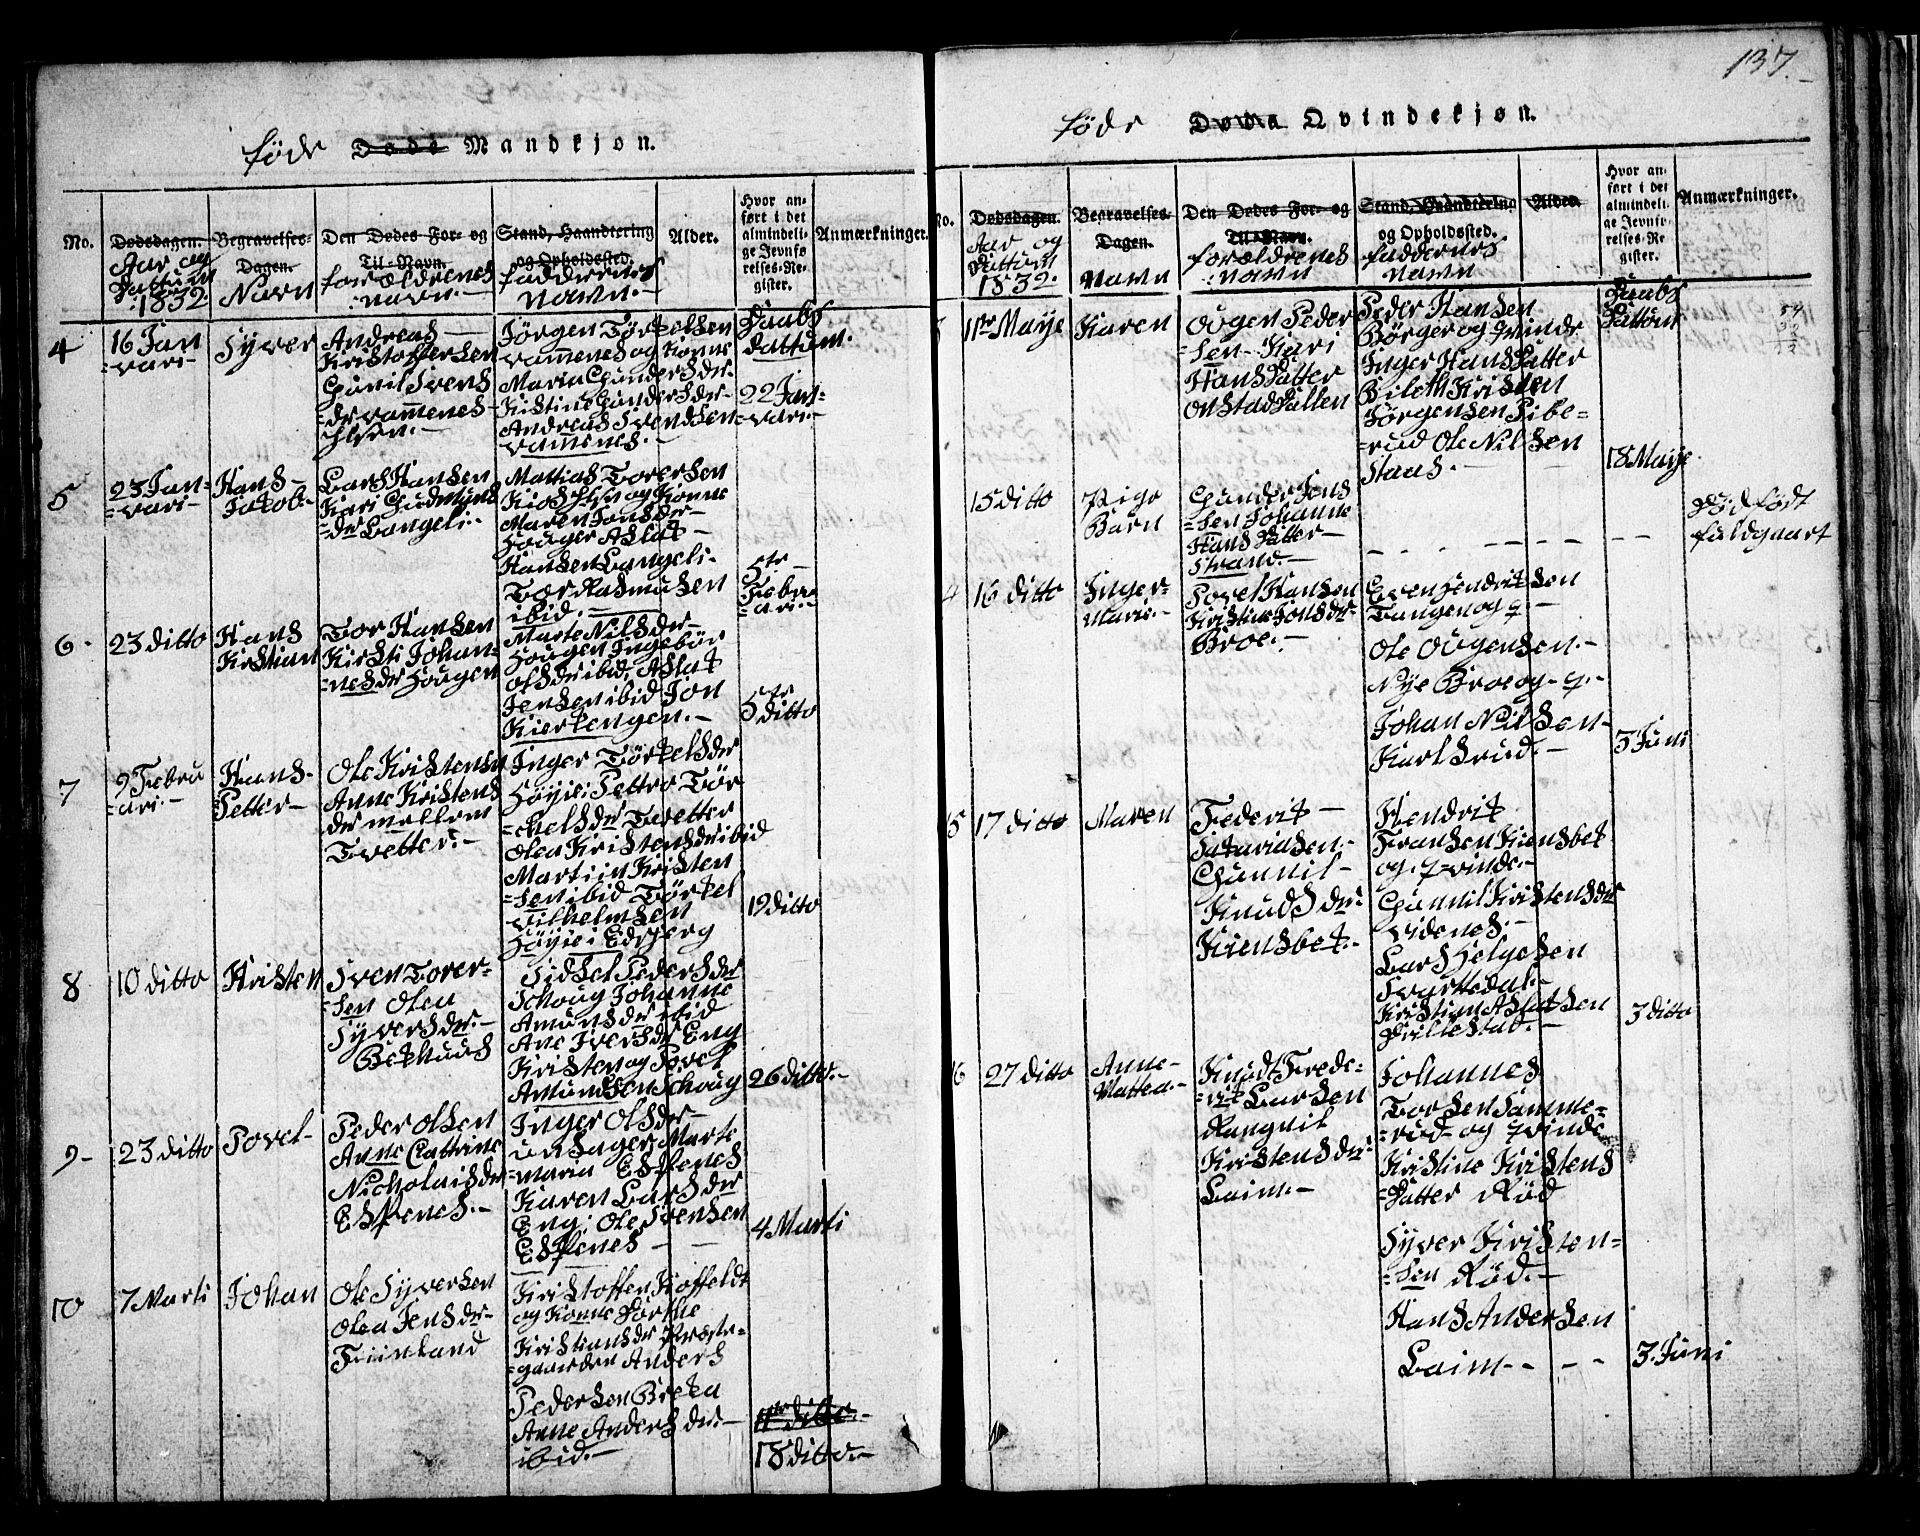 137.
føde Døde Mandkjøn.
No.
Dødsdagen.
Aar og
Dattum
1832.
Begravelses-
Dagen.
Navn
Den Dødes For- og
Til-Navn.
forældrenes
navn.-
Stand, Haandtering
og Opholdssted.
faddernes
Navn.-
Alder.
Hvor an-
ført i det
almindeli-
ge Jevnfø
relses-Re-
gister.
Anmærkninger.
Daabs
Dattum.
4
16 Jan
=vari-
Syver
Andreas
Kristoffersen
Gunil Svens
=der vammenes
Jørgen Tørkelsen
vammenes og Konne
Maria Gundersder
Kistine Gundersder-
Andreas Svendsen
vamenes.-
22 Jan
=vari.-
5
23 Jan-
=vari-
Hans-
Jokob.-
Lars Hansen
Kari Gudmunds
=der Langeli.-
Mattias Torersen
og Konne
Maren Jonsder-
Houger Aslat-
Hansen Langeli.
Tor Rasmusen
ibid.-
5te
Febru
=ari.-
6-
23 ditto
Hans
Kristian
Tor Hansen
Kirsti Johan-
=nesder Hougen
Marte Nilsder-
Hougen Ingebør
olsder ibid, Aslat
Jensen ibid Jon
Kierlengen.-
5te
ditto
7
9 Febru
=ari.-
Hans-
Petter-
Ole Kristensen
Anne Kristens
der mellem
Tvetter.-
Inger Tørkelsder
Høyie; Pettro Tør
=kelsder Tvetter
Olea Kristensder ibid
Martiin Kristen
=sen ibid Tørkel
vilhelmsen
Høyie i Edsberg
19 ditto
8
10 ditto
Kristen
Sven Torer-
=sen Olea
Syversder.-
Bekhuus
Sidsel Pedersder
Schoug Johanne
Amunsder ibid
Ane Iversder Eng
Kristen og Povel
Amundsen Schoug
26 ditto.-
9-
23 ditto
Povel-
Peder Olsen
Anne Cathrine
Nicholaisder
Espenes.-
Inger Olsder-
Marte
=maria Espenes
Karen Larsder
Eng; Ole Svensen
Espenes
4 Marti
10
7 Marti
Johan
Ole Syversen
Olea Jensder-
Kristoffer Koffeldt
og Konne Dorthe
Kristiansder Præste-
=gaarden Anders
Pedersen Breka
Anne Andersder.-
ibid.-
11te ditto.-
18 ditto.-
føde Døda Qvindekjøn.
No.
Dødsdagen.
Aar og
Dattum
1832.
Begravelses-
Dagen.
Navn
Den Dødes For- og
Til-Navn.
forældrenes
navn
Stand, Haandtering
og Opholdssted.
faddernes
Navn
Alder.
Hvor an-
ført i det
almindeli-
ge Jevnfø-
relses-Re-
gister.
Anmærkninger.
Daabs
Dattum
11te Maye
Karen
Ougen Peder
=sen-Kari
Hans Datter
Peder Hansen
Børger og Qvinde
Inger Hans Datter
Kristen
Jørgensen Pibe-
=rud Ole Nilsen
Staas.-
18 Maye
15 ditto
Pige
Barn
Gunder Jens
=sen Johanne
Hans Datter-
Strand.-
Død født
fuldgaart
4
16 ditto
Inger-
Marie.-
Povel Hansen
Kristine Jonsder-
Broe.-
Even Hendriksen
Tangen og q.-
Ole Ougensen.-
Nye Broe og-q.-
Johan Nilsen-
Karlsrud.-
3 Juni
5
17 ditto
Maren
Frederik-
Sakariasen.-
Gunnil-
Knudsder.
Kiensbet.-
Hendrik
Fransen Kiensbet
og-qvinde-
Gunnil Kristensder
videnes.-
Lars Helgesen
Svartedal.-
Kristian Aslaksen
3 ditto
6
27 ditto
Anne-
Mattea.-
Knud Frede-
=rik Larsen
Rangnil
Kristensder.
Laim.-
Johannes
Torsen Samme-
=rud-og qvinde
Kristine Kristens
=Datter Rød
Syver Kristen=
=sen Rød.-
Hans Andersen
Laim--
3. Juni